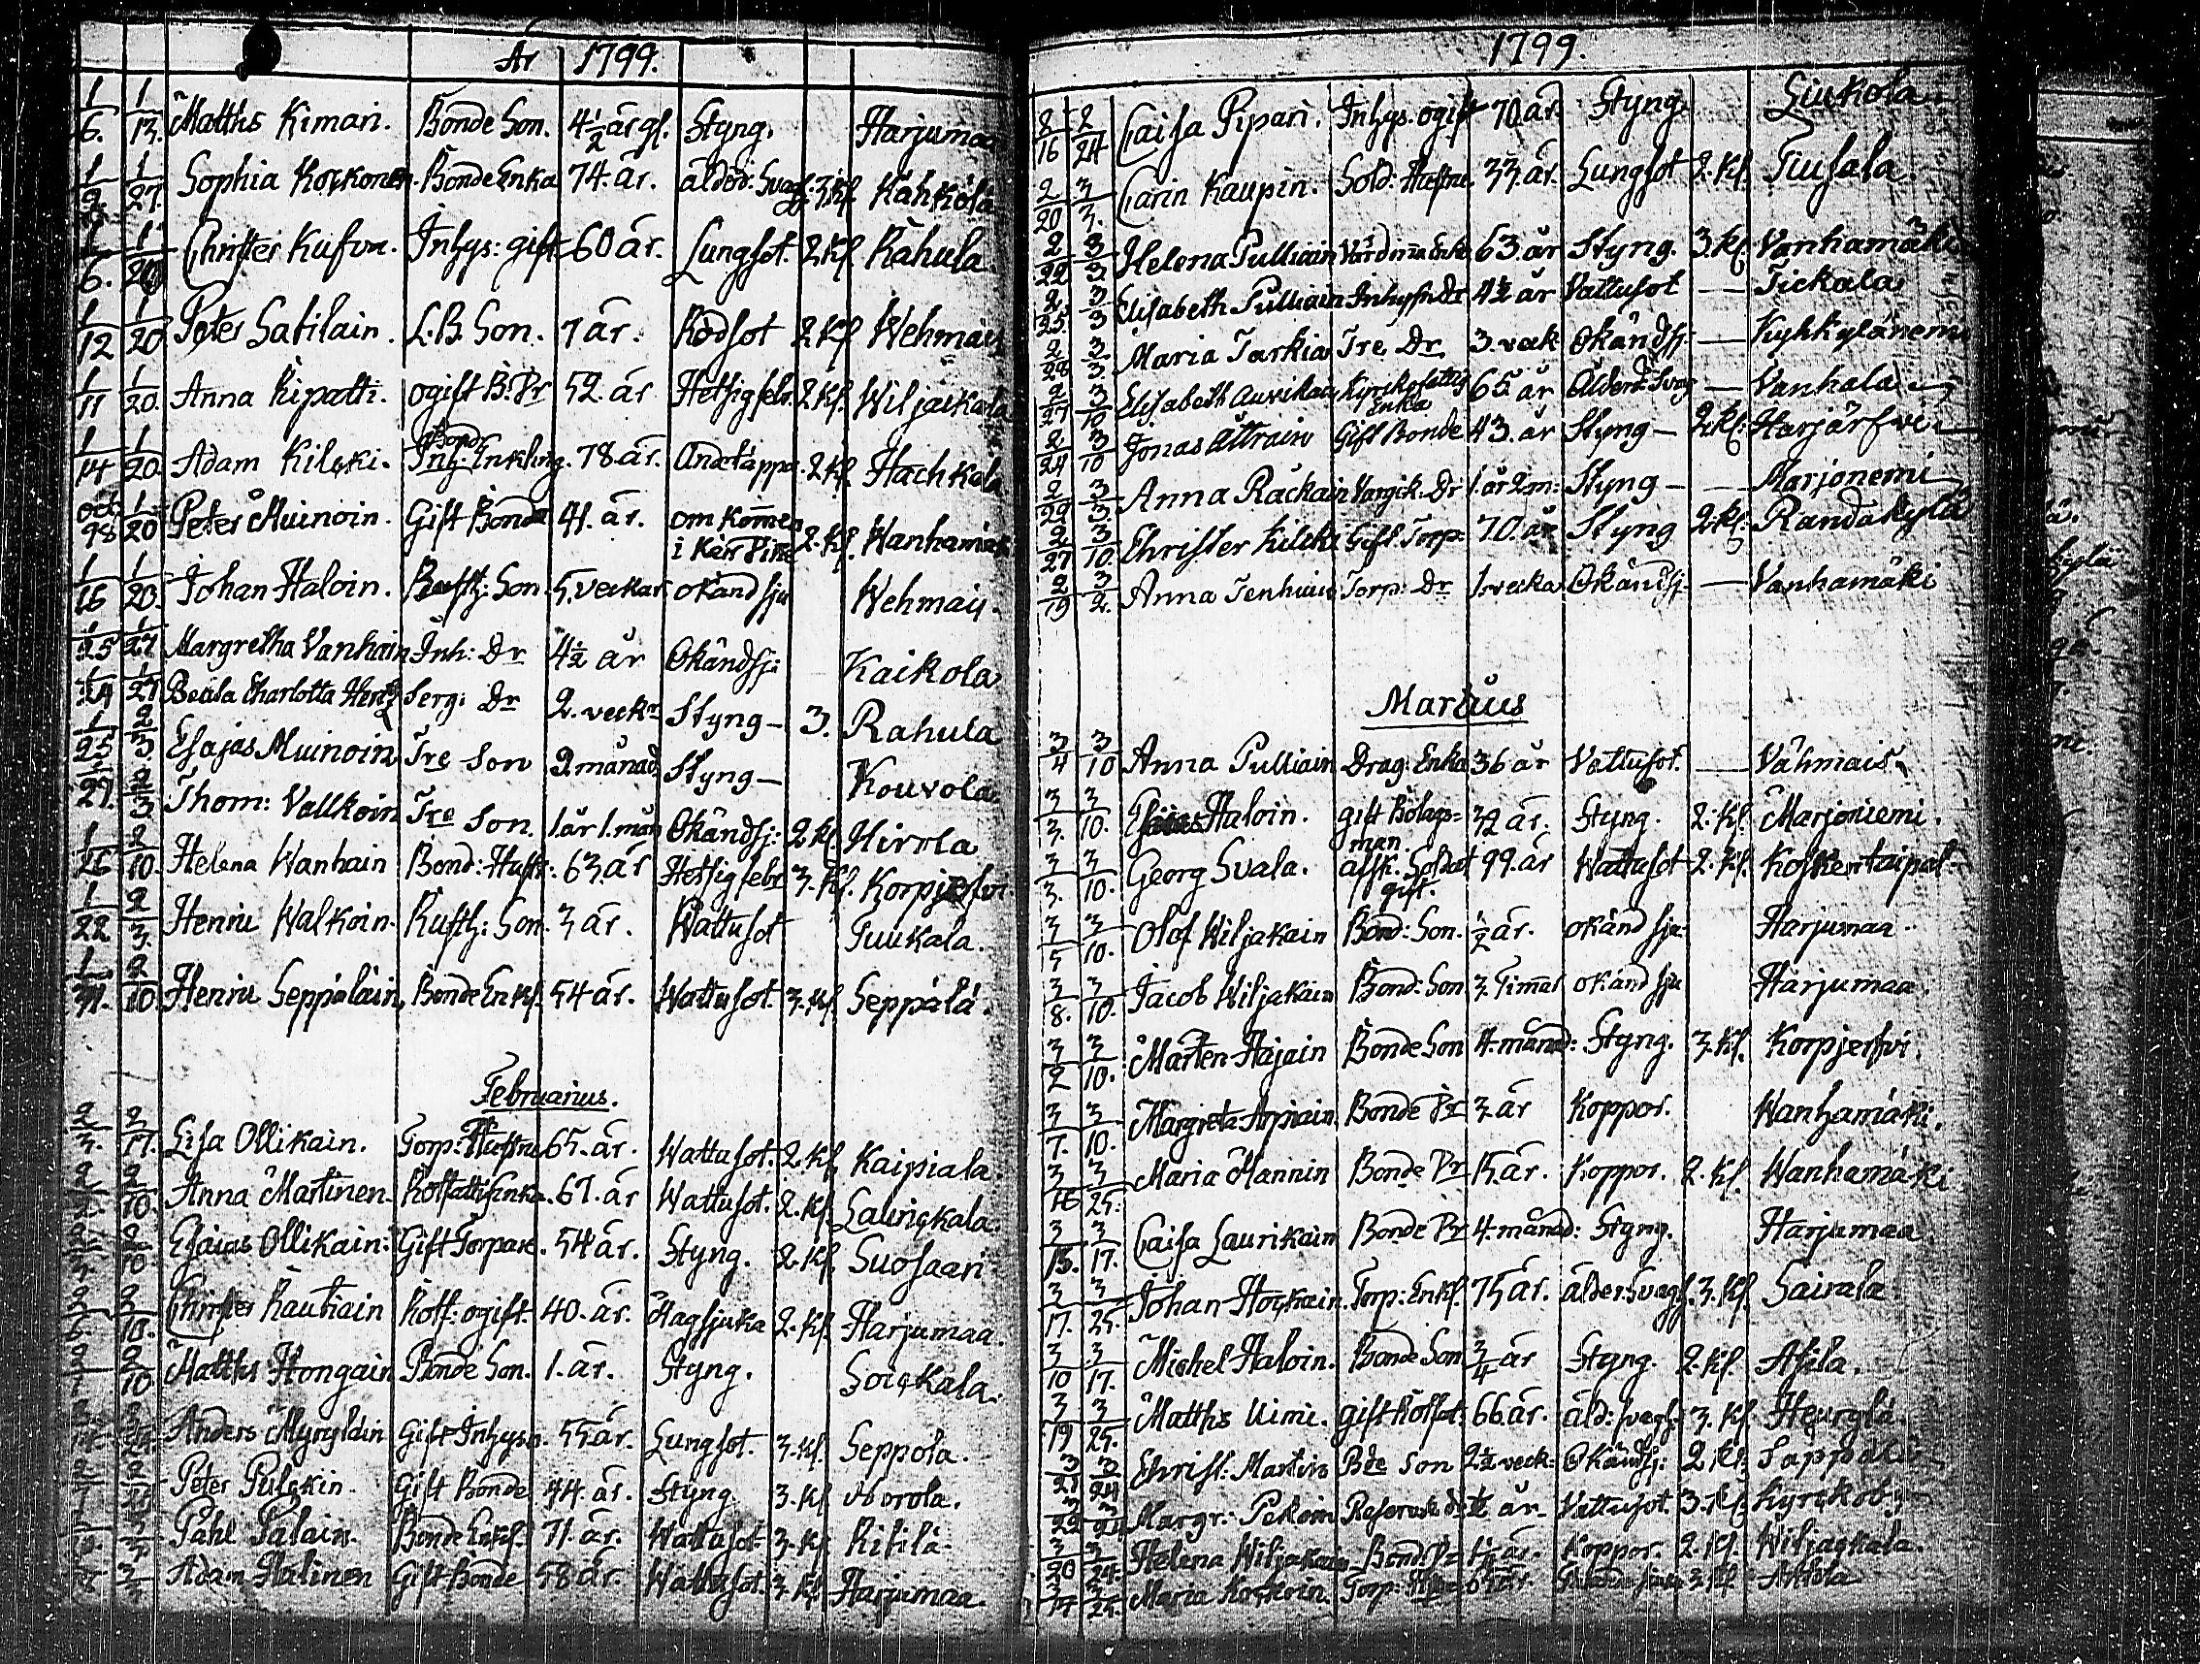 År 1799.
1/6. 1/13. Matths Kimari. Bonde Son. 4 1/2 år gl. Styng. Harjumaa
1/9. 1/27. Sophia Korkonen. Bonde Enka 74. år. ålderd: Svagh. 3 kl. Kähkölä
1/6. 1/20 Christer Kufva. Inhys: gift 60 år. Lungsot. 2 kl. Rahula.
1/12 1/20 Peter Satilain. L.B. Son. 7 år. Rödsot 2 kl. Wehmais
1/11 1/20. Anna Ripatti. ogift B. Pr 52. år Hetsigfebr. 2 kl. Wiljaikala
Bond
1/14 1/20. Adam Kilski. Inh: Enkling. 78. år. Andetäppa. 2 kl. Hachkala
oct 98 1/20 Peter Muinoin. Gift Bonde 41. år. omkommen
i Kärr 2. kl. Wanhamäki
1/16 1/20. Johan Haloin. Rusth: Son. 5. veckor okänd sju Wehmais.
1/25 1/27 Margretha Vanhain Inh: Dr 4 1/2 år Okändsj: Kaikola
1/24 1/27 Beata Charlotta Serg: Dr 2. veckr Styng – 3. Rahula
1/25 2/3 Esajas Muinoin Tre Son 2 månad. Styng – Kouvola
1/27. 2/3 Thom: Vallkoin Tre Son. 1. år 1. mån Okändsj: 2 kl. Hirola
1/26 2/10. Helena Wanhain Bond: Hustr: 63. år Hetsig febr 3. kl. Korpjerfvi
1/22 2/3. Henric Walkoin. Rusth: Son. 3 år. Wattusot Tuukala.
1/31. 2/10 Henric Seppäläin. Bonde Enkl. 54 år. Wattusot. 3. kl. Seppälä.
Februarius.
2/3. 2/17. Lisa Ollikain. Torp: Hustru 65. år. Wattusot. 2. kl. Kaipiala.
2/2. 2/10. Anna Martinen. Enka. 67. år Wattusot. 2. kl. Laurickala.
2/10. Esaias Ollikain. Gift Torpare. 54 år. Styng. 2. kl. Suosaari
2/6. 2/10. Christer Rautiain Rott: ogift. 40. år. Magsjuka 2. kl. Harjumaa.
2/10 Matths Hongain Bonde Son. 1. år. Styng. Soickala.
Anders Myryläin Gift Inhys. 55 år. Lungsot. 3. kl. Seppola.
Peter Pulckin. Gift Bonde 44. år. Styng 3. kl Norola.
Påhl Palain. Bonde Enkl. 71. år. Wattusot 3. kl Ritilä
8 3/3 Adam Halinen Gift Bonde 58 år. Wattusot. 3. kl Harjumaa.
1799.
2/16 2/24 Caisa Pipari. Inhys. ogift 70 år. Styng. Liukola
2/20 3/3. Carin Kaupin. Sold: Hustru. 33. år. Lungsot 2. kl. Tiusala
2/22 3/3 Helena Pulliain Enka 63. år Styng. 3. kl. Vanhamäki
2/25. 3/3 Elisabeth Pulliain Inhyses Dr 4 1/2 år Vattusot — Tickala
2/28 3/3 Maria Tarkia Tre Dr 3. veck Okändsj — Kyhkylänemi
2/27 3/10 Elisabeth Auvikai Kyrckofattig
Enka 65. år Ålderd: Svag — Vanhala
2/24 3/10 Jonas Åttrain Gift Bonde 43. år Styng – 2. kl: Harjärfvi
2/29 3/3 Anna Räckäin Dr 1. år 2 m: Styng – Marjonemi
2/27 3/10. Christer Kilcki Gift Torp: 70. år Styng 2. kl. Randakylä
2/19 3/2. Anna Tenhuin Torp: Dr 1. vecka Okändsj – Vanhamäki
Martius
3/4 3/10 Anna Pulliain Drag: Enka 36 år Vattusot. — Vähmais.
3/3. 3/10. Esaias Haloin. gift Bolags=
man 32 år. Styng. 2. kl. Marjoniemi.
3/3. 3/10. Georg Svala. afsk. Soldat
gift. 99. år Wattusot 2. kl. Koskentaipal
3/5 3/10. Olof Wiljakain Bond: Son. 1/2 år. okänd sju: Harjumaa.
3/8. 3/10. Jacob Wiljakain Bond: Son 3. Timar okänd sju Harjumaa.
3/2 3/10. Mårten Hajain Bonde Son 4. månad: Styng. 3. kl. Korpjerfvi.
3/7. 3/10. Margreta Arpiain. Bonde Dr 3. år Koppor. Wanhamäki.
3/16 3/25. Maria Mannin Bonde Dr 15. år. Koppor. 2. kl. Wanhamäki
3/15. 3/17. Caisa Laurikain Bonde Dr 4. månad: Styng. Harjumaa
3/17. 3/25. Johan Hockain. Torp: Enkl. 75 år. ålder: Svagh. 3. kl. Sairala
3/10 3/17. Michel Haloin. Bonde Son 3/4 år Styng. 2. kl. Asila.
3/19 3/25. Matths Uimi. gift 66. år. åld: svagh 3. kl Heurylä.
3/21 3/24 Christ: Martin Bde Son 2 1/2 veck: Okändsj: 2 kl:
3/22 3/24 Margr: Pekoin 1/2 år Vattusot. 3. kl: Kyrckoby
3/20 3/25. Helena Wiljakain Bond: Dr 1 1/2 år. Koppor. 2. kl. Wiljackala.
3/14 3/25. Maria Korkoin. Torp: 3. kl. Anttola